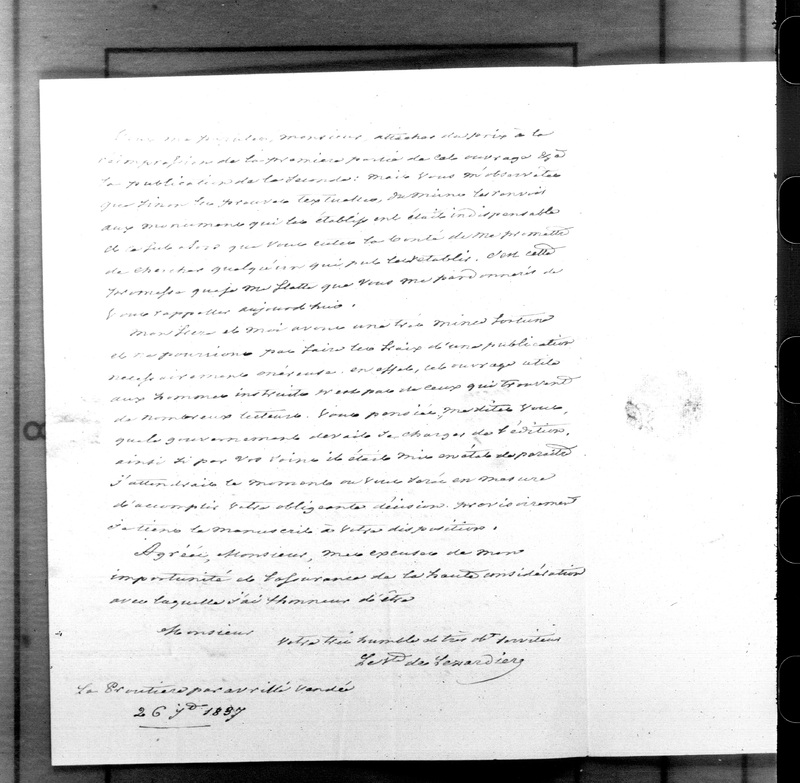 Vous me paroissiez, monsieur, attacher du prix à la
réimpression de la première partie de cet ouvrage & à
la publication de la seconde: mais vous m'observâtes
que sinon les preuves textuelles, du moins les renvois
aux monuments qui les établissent étaient indispensable
que vous eutes la bonté de me promettre
de chercher quelqu'un qui put les rétablir. C'est cette
promesse que je me flatte que vous me pardonnerés de
vous rappeller aujourd'hui.
Mon frere et moi avons une très mince fortune
et ne pourrions pas faire les fraix d'une publication
nécessairement onéreuse. en effet, cet ouvrage utile
aux hommes instruits n'est pas de ceux qui trouvent
de nombreux lecteurs. Vous pensiés, me dites vous,
que le gouvernement devait se charger de l'édition,
ainsi si par vos soins il était mis en état de paraitre
j'attendrais le moment où vous seriés en mesure
d'accomplir votre obligeante décision. provisoirement
je tiens le manuscrit à votre disposition.
Agréés, Monsieur, mes excuses de mon
importunité et l'assurance de la haute considération
avec laquelle j'ai l'honneur d'être
Monsieur
Votre très humble et très obt serviteur
Le Vte de Lezardiere
La Proutiere par avrillé vendée
26 7bre 1837
8